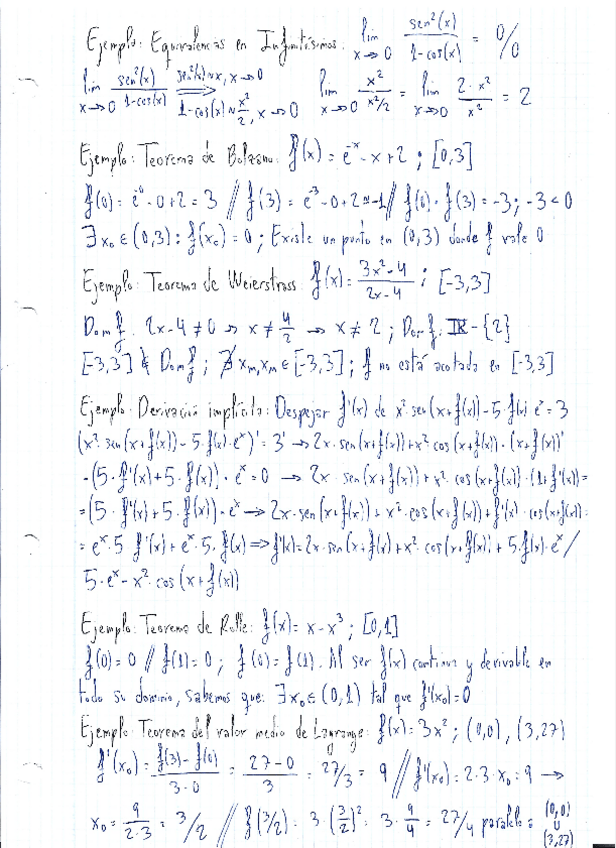 Ejemplo: Equivalencias en Infinitésimos: lim x→0 sen²(x)/1-cos(x) = 0/0
lim x→0 sen²(x)/1-cos(x) ⇒ sen²(x)~x, x→0 1-cos(x)~x²/2, x→0 lim x→0 x²/x²/2 = lim x→0 2·x²/x² = 2
Ejemplo: Teorema de Bolzano: f(x) = e⁻ˣ-x+2 ; [0,3]
f(0) = e⁻⁰-0+2 = 3 // f(3) = e⁻³-0+2≈-1 // f(0)·f(3) = -3; -3<0
∃ x₀ ∈ (0,3) : f(x₀) = 0 ; Existe un punto en (0,3) donde f vale 0
Ejemplo: Teorema de Weierstrass: f(x) = 3x²-4/2x-4 ; [-3,3]
Dom f: 2x-4≠0 → x≠4/2 → x≠2 ; Dom f: ℝ-{2}
[-3,3] ⊄ Dom f ; ∄ xₘ,xₘ ∈ [-3,3] ; f no está acotada en [-3,3]
Ejemplo: Derivación implícita: Despejar f'(x) de x²·sen(x+f(x))-5·f(x)·eˣ = 3
(x²·sen(x+f(x))-5·f(x)·eˣ)' = 3' → 2x·sen(x+f(x))+x²·cos(x+f(x))·(x+f(x))'
-(5·f'(x)+5·f(x))·eˣ = 0 → 2x·sen(x+f(x))+x²·cos(x+f(x))·(1+f'(x)) =
= (5·f'(x)+5·f(x))·eˣ → 2x·sen(x+f(x))+x²·cos(x+f(x))+f'(x)·cos(x+f(x)) =
= eˣ·5·f'(x)+eˣ·5·f(x) ⇒ f'(x) = 2x·sen(x+f(x)+x²·cos(x+f(x))+5·f(x)·eˣ /
5·eˣ-x²·cos(x+f(x))
Ejemplo: Teorema de Rolle: f(x) = x-x³ ; [0,1]
f(0) = 0 // f(1) = 0 ; f(0) = f(1). Al ser f(x) continua y derivable en
todo su dominio, sabemos que: ∃ x₀ ∈ (0,1) tal que f'(x₀) = 0
Ejemplo: Teorema del valor medio de Lagrange: f(x) = 3x² ; (0,0), (3,27)
f'(x₀) = f(3)-f(0)/3-0 = 27-0/3 = 27/3 = 9 // f'(x₀) = 2·3·x₀ = 9 →
x₀ = 9/2·3 = 3/2 // f(3/2) = 3·(3/2)² = 3·9/4 = 27/4 paralela = (0,0) U (3,27)